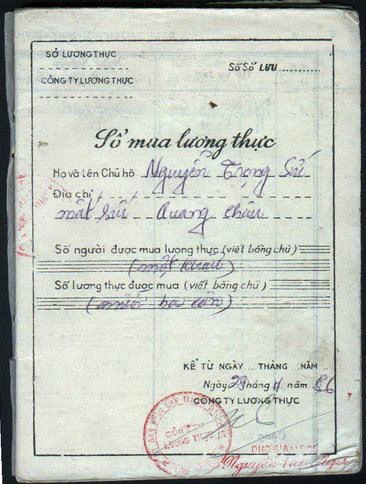 SỞ LƯƠNG THỰC
Số Sổ LƯU
CÔNG TY LƯƠNG THỰC
Sổ mua lương thực
Họ và tên Chủ hộ Nguyễn Trọng
Địa chỉ
mất sứt Quang
Số người được mua lương thực (viết bằng chữ)
(một khẩu)
Số lương thực được mua (viết bằng chữ)
(mười ba cân)
KỂ TỪ NGÀY ... THÁNG ... NĂM ...
Ngày 28 tháng 11 năm 86
CÔNG TY LƯƠNG THỰC
CÔNG TY
LƯƠNG THỰC
PHÓ GIÁM ĐỐC
Nguyễn